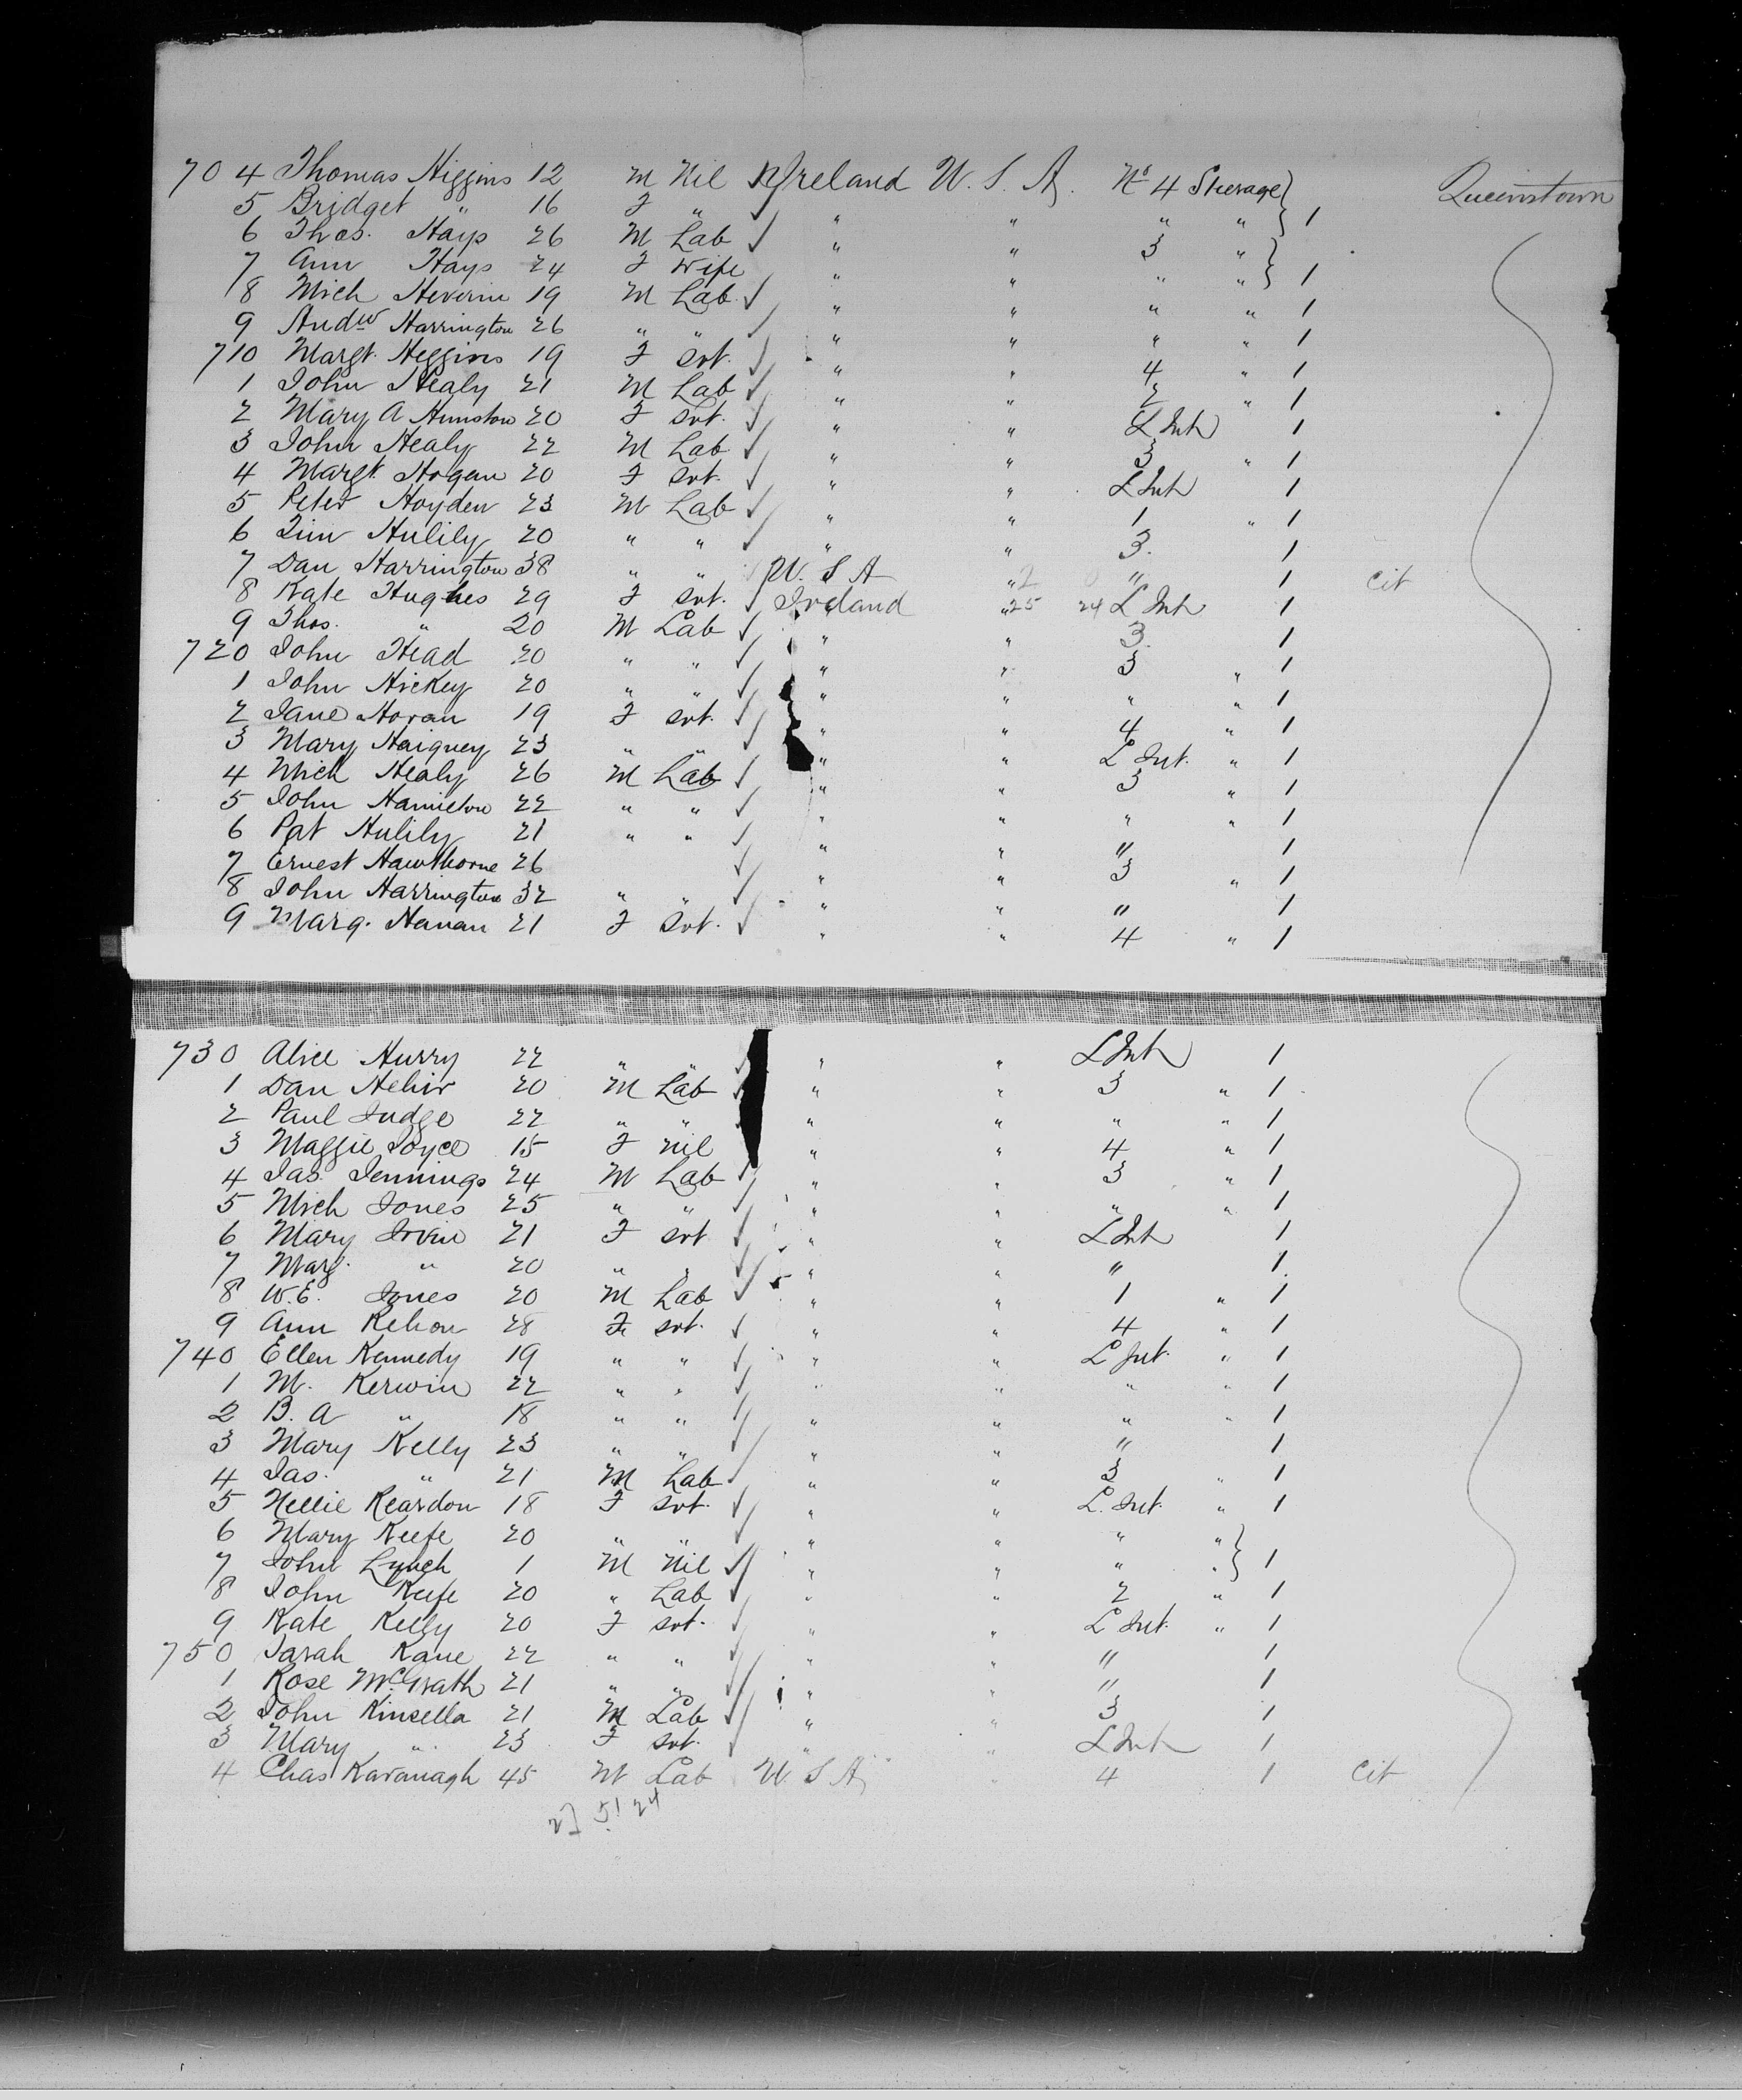 704 Thomas Higgins 12 M Nil Ireland U. S. A. No 4 Steerage } Queenstown
5 Bridget " 16 F " " " " " } 1
6 Thos. Hays 26 M Lab " " 3 " }
7 Ann Hays 24 F Wife " " " " } 1
8 Mich Heverin 19 M Lab. " " " " 1
9 Andw Harrington 26 " " " " " " 1
710 Margt. Higgins 19 F Svt. " " 4 " 1
1 John Healy 21 M Lab " " 2 " 1
2 Mary A 20 F Svt. " " L Int 1
3 John Healy 22 M Lab " " 3 " 1
4 Margt. Hogan 20 F Svt. " " L Int 1
5 Peter Hoyden 23 M Lab " " 1 " 1
6 Tim Hulily 20 " " " " 3. 1
7 Dan Harrington 38 " " U. S A " " 1 Cit
8 Kate Hughes 29 F Svt. Ireland " 25 24 L Int 1
9 Thos. " 20 M Lab " " 3. 1
720 John Head 20 " " " " 3 " 1
1 John Hickey 20 " " " " " " 1
2 Jane Horan 19 F Svt. " " 4 " 1
3 Mary Haigney 23 " " " " L Int. " 1
4 Mich Healy 26 M Lab " " 3 " 1
5 John Hamilton 22 " " " " " " 1
6 Pat Hulily 21 " " " " " 1
7 Ernest Hawthorne 26 " " 3 " 1
8 John Harrington 32 " " " " " 1
9 Marg. Hanan 21 F Svt. " " 4 " 1
730 Alice Hurry 22 " " " " L Int 1
1 Dan Hehir 20 M Lab " " 3 " 1
2 Paul Judge 22 " " " " " " 1
3 Maggie Joyce 15 F Nil " " 4 " 1
4 Jas. Jennings 24 M Lab " " 3 " 1
5 Mich Jones 25 " " " " " " 1
6 Mary Irvin 21 F Svt " " L Int 1
7 Marg. " 20 " " " " " 1
8 W.E. Jones 20 M Lab " " 1 " 1
9 Ann Kehon 28 F Svt. " " 4 " 1
740 Ellen Kennedy 19 " " " " L Int. " 1
1 M. Kerwin 22 " " " " " " 1
2 B. A " 18 " " " " " " 1
3 Mary Kelly 23 " " " " " 1
4 Jas. " 21 M Lab " " 3 " 1
5 Nellie Reardon 18 F Svt. " " L. Int. " 1
6 Mary Keefe 20 " " " " " " }
7 John Lynch 1 M Nil " " " " } 1
8 John Keefe 20 " Lab " " 2 " 1
9 Kate Kelly 20 F Svt. " " L Int. " 1
750 Sarah Kane 22 " " " " " 1
1 Rose McGrath 21 " " " " " 1
2 John Kinsella 21 M Lab " " 3 1
3 Mary " 23 F Svt. " " L Int 1
4 Chas Kavanagh 45 M Lab U. S A " 4 1 Cit
27 51 24